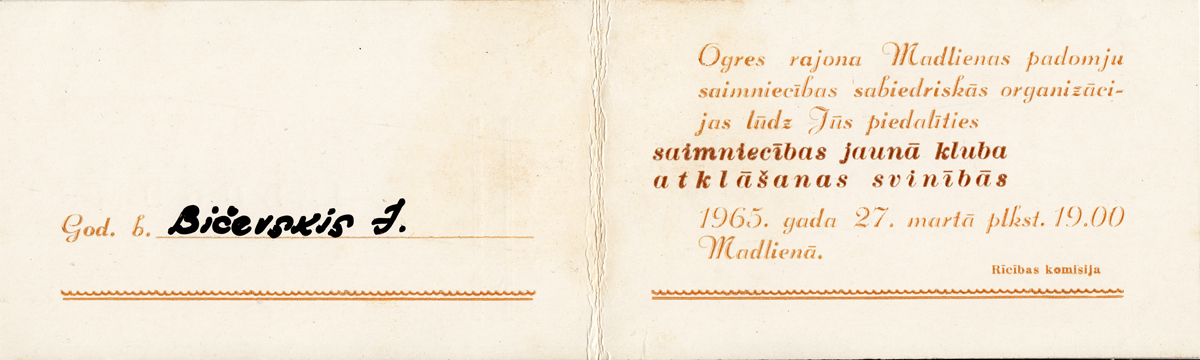 God. b. Bičevskis J.
Ogres rajona Madlienas padomju
saimniecības sabiedriskās organizāci-
jas lūdz Jūs piedalīties
saimniecības jaunā kluba
atklāšanas svinībās
1965. gada 27. martā plkst. 19.00
Madlienā.
Rīcības komisija